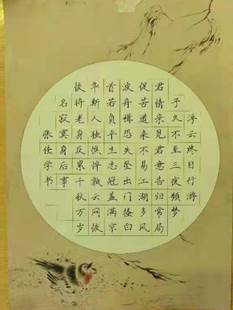 浮云终日行游
子久不至三夜频梦
君情亲见君意告归常局
促苦道来不易江湖多风
波舟楫恐失坠出门搔白
首若负平生志冠盖满京
华斯人独憔悴孰云网恢
恢将老身反累千秋万岁
名寂寞身后事
张任学书